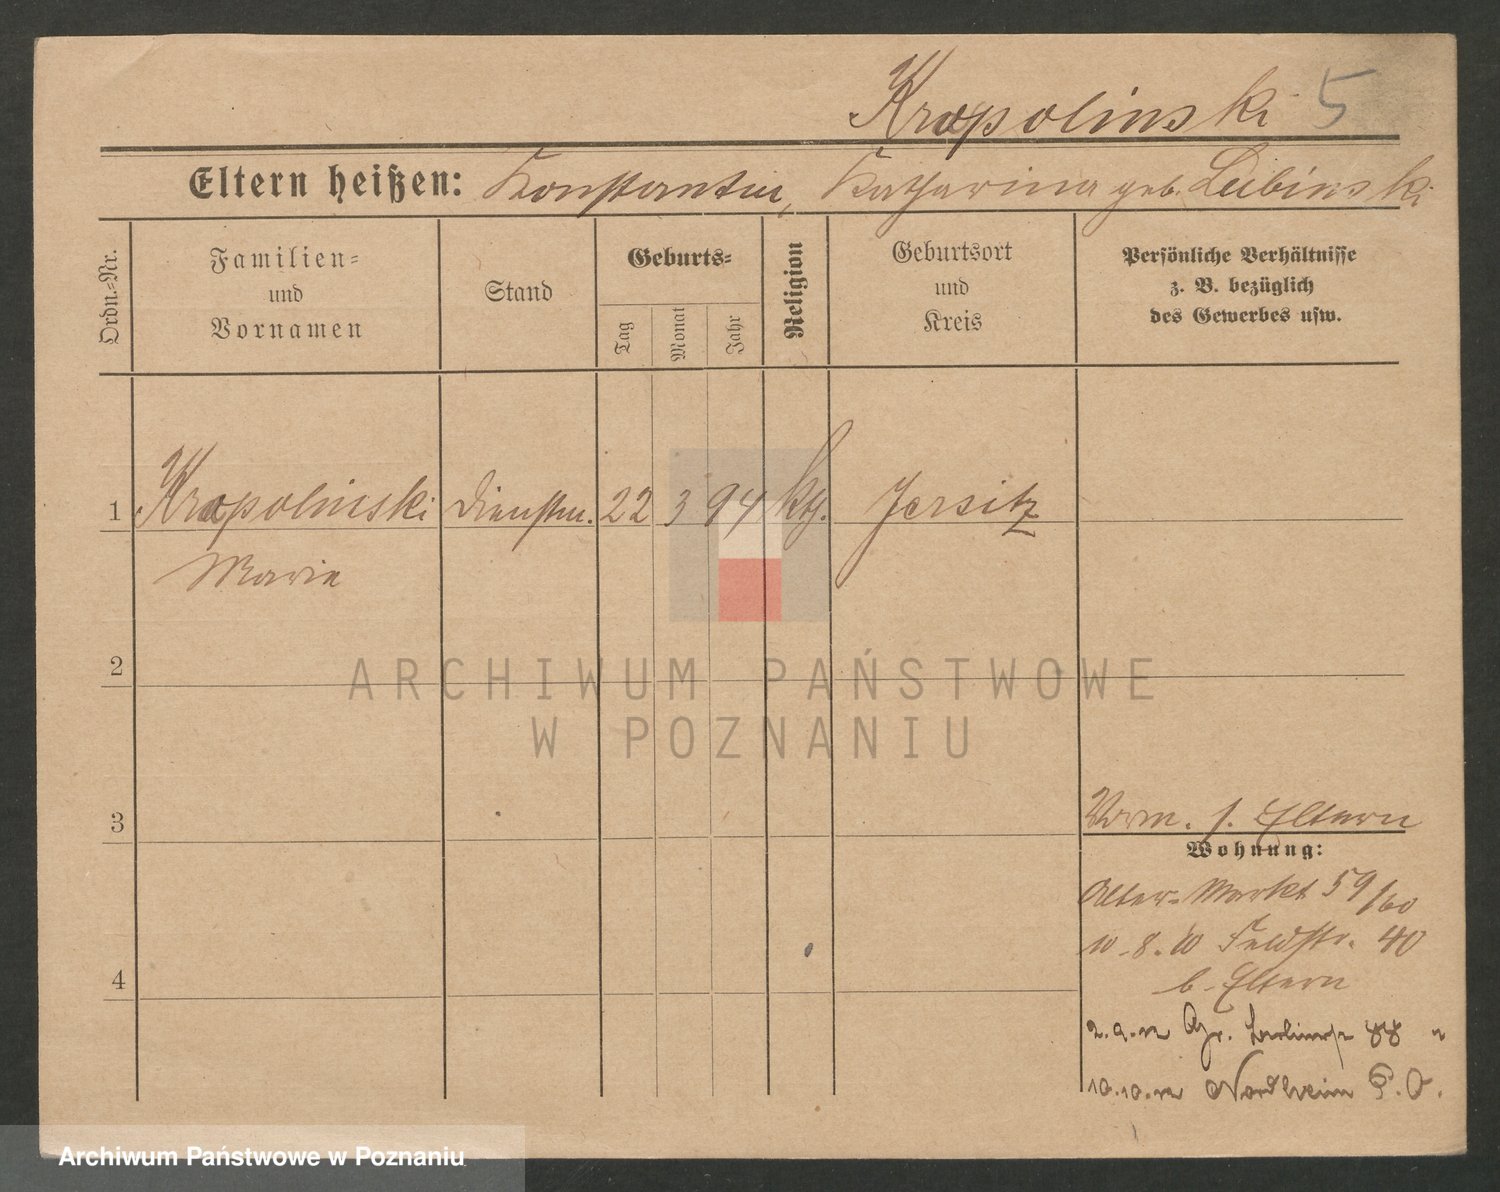 Kropolinski 5
Eltern heißen: Konstantin, Katharina geb. Lubinski
Ordn.-Nr.
Familien-
und
Vornamen
Stand
Geburts-
Tag
Monat
Jahr
Religion
Geburtsort
und
Kreis
Persönliche Verhältnisse
z. B. bezüglich
des Gewerbes usw.
1 Kropolinski Dienstm. 22 3 94 kth. Jersitz
Marie
2
ARCHIWUM PAŃSTWOWE
W POZNANIU
3
Vorm. s. Eltern
Wohnung:
Alter-Markt 59/60
10.8.10 Feldstr. 40
b. Eltern
4
2.9.12 Gr. Berlinerstr 88
10.10.12 Nordheim P. O.
Archiwum Państwowe w Poznaniu